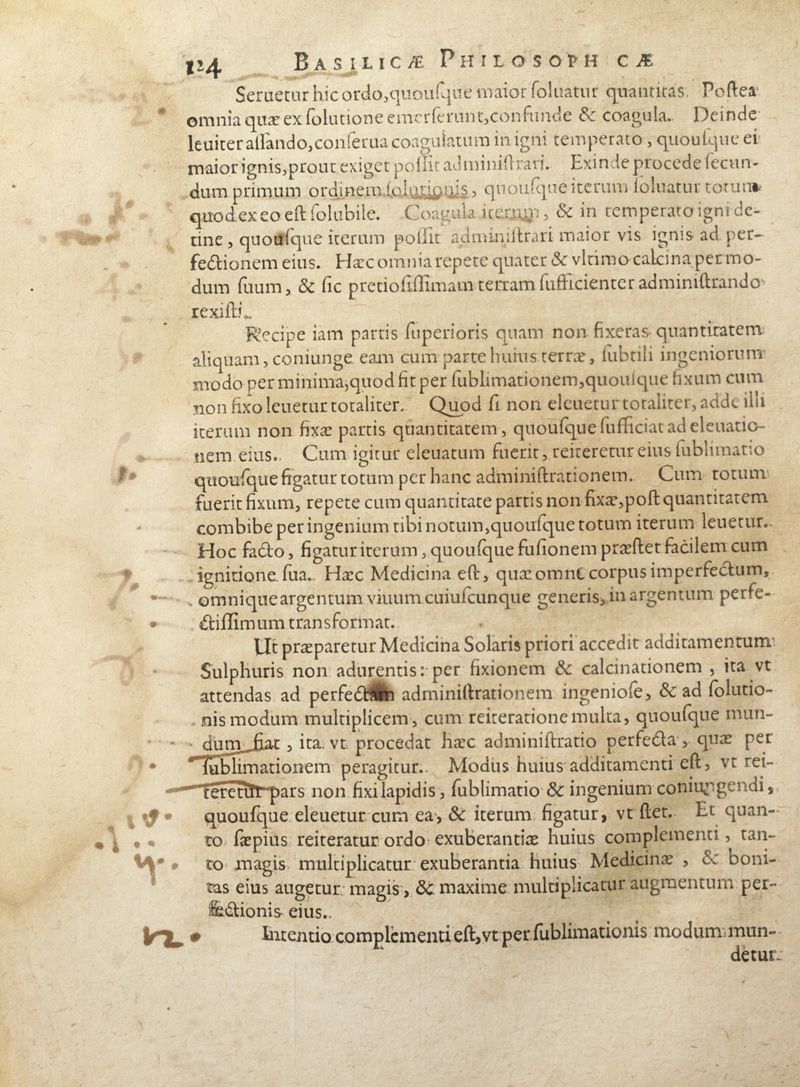 124 BASILICÆ PHILOSOPH CÆ
Seruetur hic ordo,quouſque maior ſoluatur quantitas. Poſtea
omnia quæ ex ſolutione emerſerunt,confunde & coagula. Deinde
leuiter aſſando,conſerua coagulatum in igni temperato, quouſque ei
maior ignis,prout exiget poſſit adminiſtrari. Exinde procede ſecun-
dum primum ordinem ſolutionis, quouſque iterum ſoluatur totum
quod ex eo eſt ſolubile. Coagula iterum, & in temperato igni de-
tine, quouſque iterum poſſit adminiſtrari maior vis ignis ad per-
fectionem eius. Hæc omnia repete quater & vltimo calcina per mo-
dum ſuum, & ſic pretioſiſſimam terram ſufficienter adminiſtrando
rexiſti.
Recipe iam partis ſuperioris quam non fixeras quantitatem
aliquam, coniunge eam cum parte huius terræ, ſubtili ingeniorum
modo per minima,quod fit per ſublimationem,quouſque fixum cum
non fixo leuetur totaliter. Quod ſi non eleuetur totaliter, adde illi
iterum non fixæ partis quantitatem, quouſque ſufficiat ad eleuatio-
nem eius. Cum igitur eleuatum fuerit, reiteretur eius ſublimatio
quouſque figatur totum per hanc adminiſtrationem. Cum totum
fuerit fixum, repete cum quantitate partis non fixæ,poſt quantitatem
combibe per ingenium tibi notum,quouſque totum iterum leuetur.
Hoc facto, figatur iterum, quouſque fuſionem præſtet facilem cum
ignitione ſua. Hæc Medicina eſt, quæ omne corpus imperfectum,
omnique argentum viuum cuiuſcunque generis, in argentum perfe-
ctiſſimum transformat.
Ut præparetur Medicina Solaris priori accedit additamentum
Sulphuris non adurentis: per fixionem & calcinationem , ita vt
attendas ad perfectam adminiſtrationem ingenioſe, & ad ſolutio-
nis modum multiplicem, cum reiteratione multa, quouſque mun-
dum fiat , ita vt procedat hæc adminiſtratio perfecta , quæ per
ſublimationem peragitur. Modus huius additamenti eſt, vt rei-
teretur pars non fixi lapidis, ſublimatio & ingenium coniungendi,
quouſque eleuetur cum ea, & iterum figatur, vt ſtet. Et quan-
to ſæpius reiteratur ordo exuberantiæ huius complementi , tan-
to magis multiplicatur exuberantia huius Medicinæ , & boni-
tas eius augetur magis, & maxime multiplicatur augmentum per-
fectionis eius.
Intentio complementi eſt,vt per ſublimationis modum mun-
detur